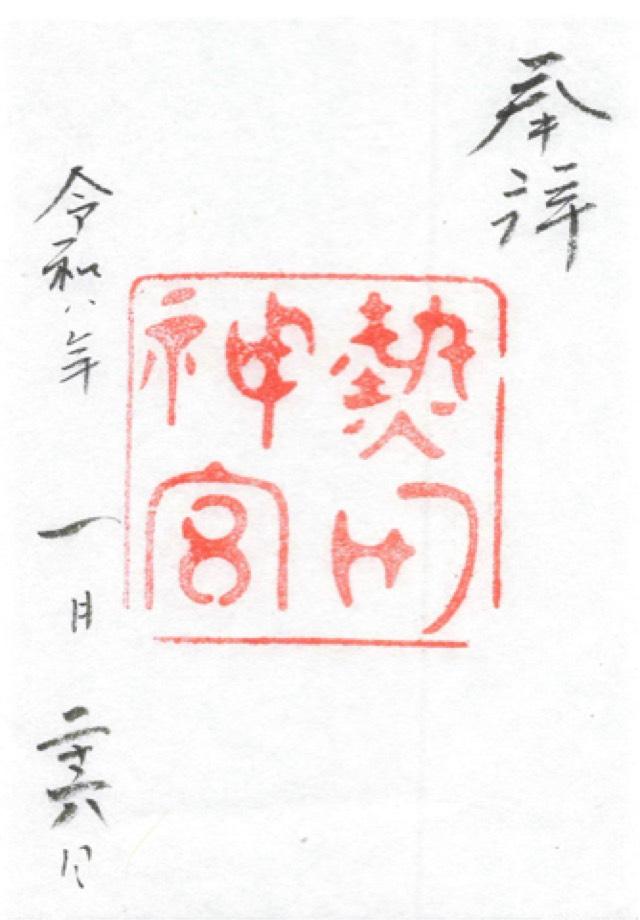 奉拝
熱田
神宮
令和八年 一月 二十六日